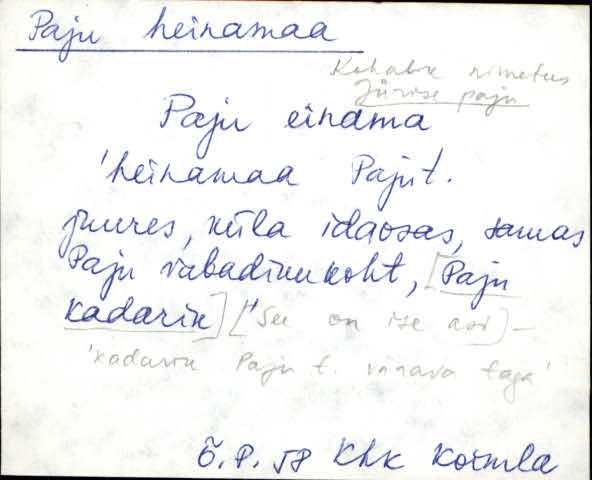 Paju heinamaa
Kohaliku nimetus
Jürise paju
Paju einama
'heinamaa Paju t.
juures, küla idaosas, samas
Paju vabadikukoht, [Paju
kadarik] [See on ise asi] –
'kadarik Paju t. värava taga'
P. 58 Khk Koimla